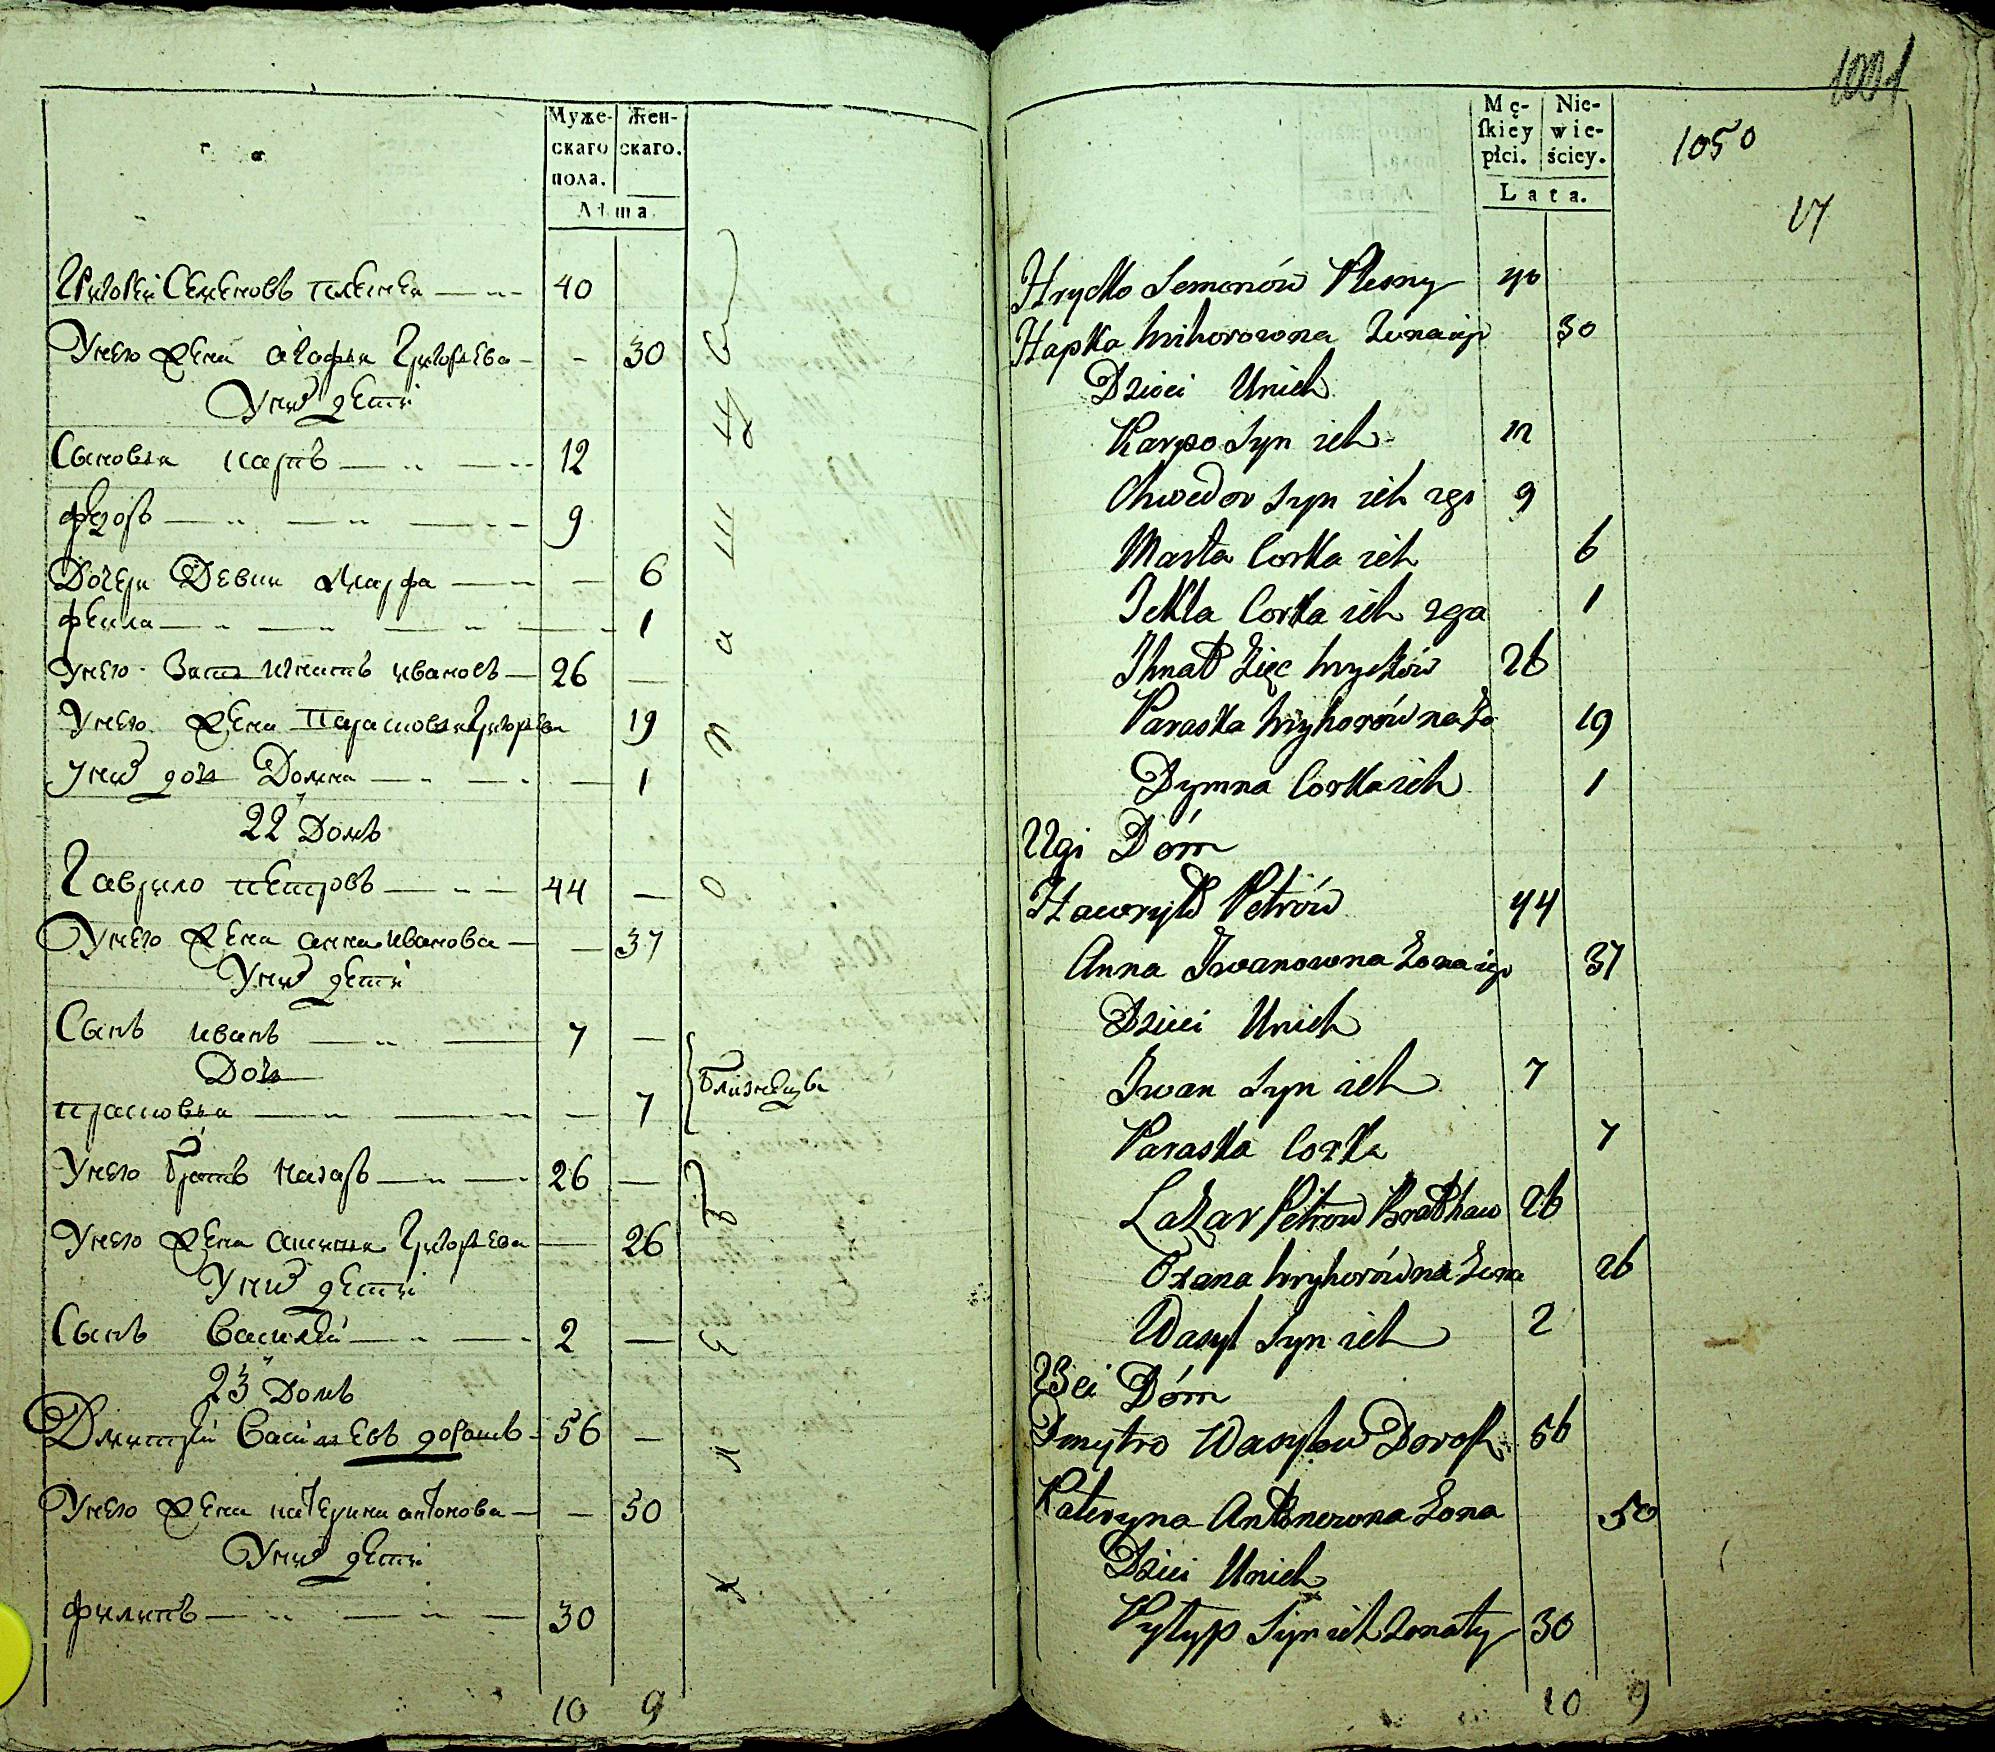 Муже-
скаго
пола.
Жен-
скаго.
Лѣта.
Григорей Семеновъ плесней 40
У него жена агафья Григорьева 30
У них дети
Сыновья карпъ 12
федоръ 9
Дочери Девки Марфа 6
фекла 1
У него Зять игнатъ ивановъ 26
У него жена Парасковья Григорьева 19
У них дочь Домна 1
22й Домъ
Гаврило петровъ 44
У него жена анна иванова 37
У них дети
Сынъ иванъ 7
Дочь
прасковья 7
близнецы
У него братъ 26
У него жена Григорьева 26
У них дети
Сынъ Василей 2
23й Домъ
Дмитрей Васильевъ дорошъ 56
У него жена катерина антонова 50
У них дети
филипъ 30
10 9
1001
Mę-
ſkiey
płci.
Nie-
wie-
ściey.
Lata.
1050
17
Hryćko Semenów Plesny 40
Hapka hrihorowna Zona iego 30
Dzieci Unich
Karpo Syn ich 12
Chwedor Syn ich 2gi 9
Marta Corka ich 6
Tekla Corka ich 2ga 1
Ihnat Zięc hryćków 26
Paraska hryhorówna Zo 19
Dymna Corka ich 1
22gi Dóm
Hawryło Petrów 44
Anna Iwanowna Zona iego 37
Dzieci Unich
Iwan Syn ich 7
Paraska Corka 7
Lazar Petrow Brat haw 26
Oxana hryhorówna Zona 26
Wasyl Syn ich 2
23ci Dóm
Dmytro Wasylow Dorosz 56
Kateryna Antonowna Zona 50
Dzieci Unich
Pylyp Syn ich Zonaty 30
10 9